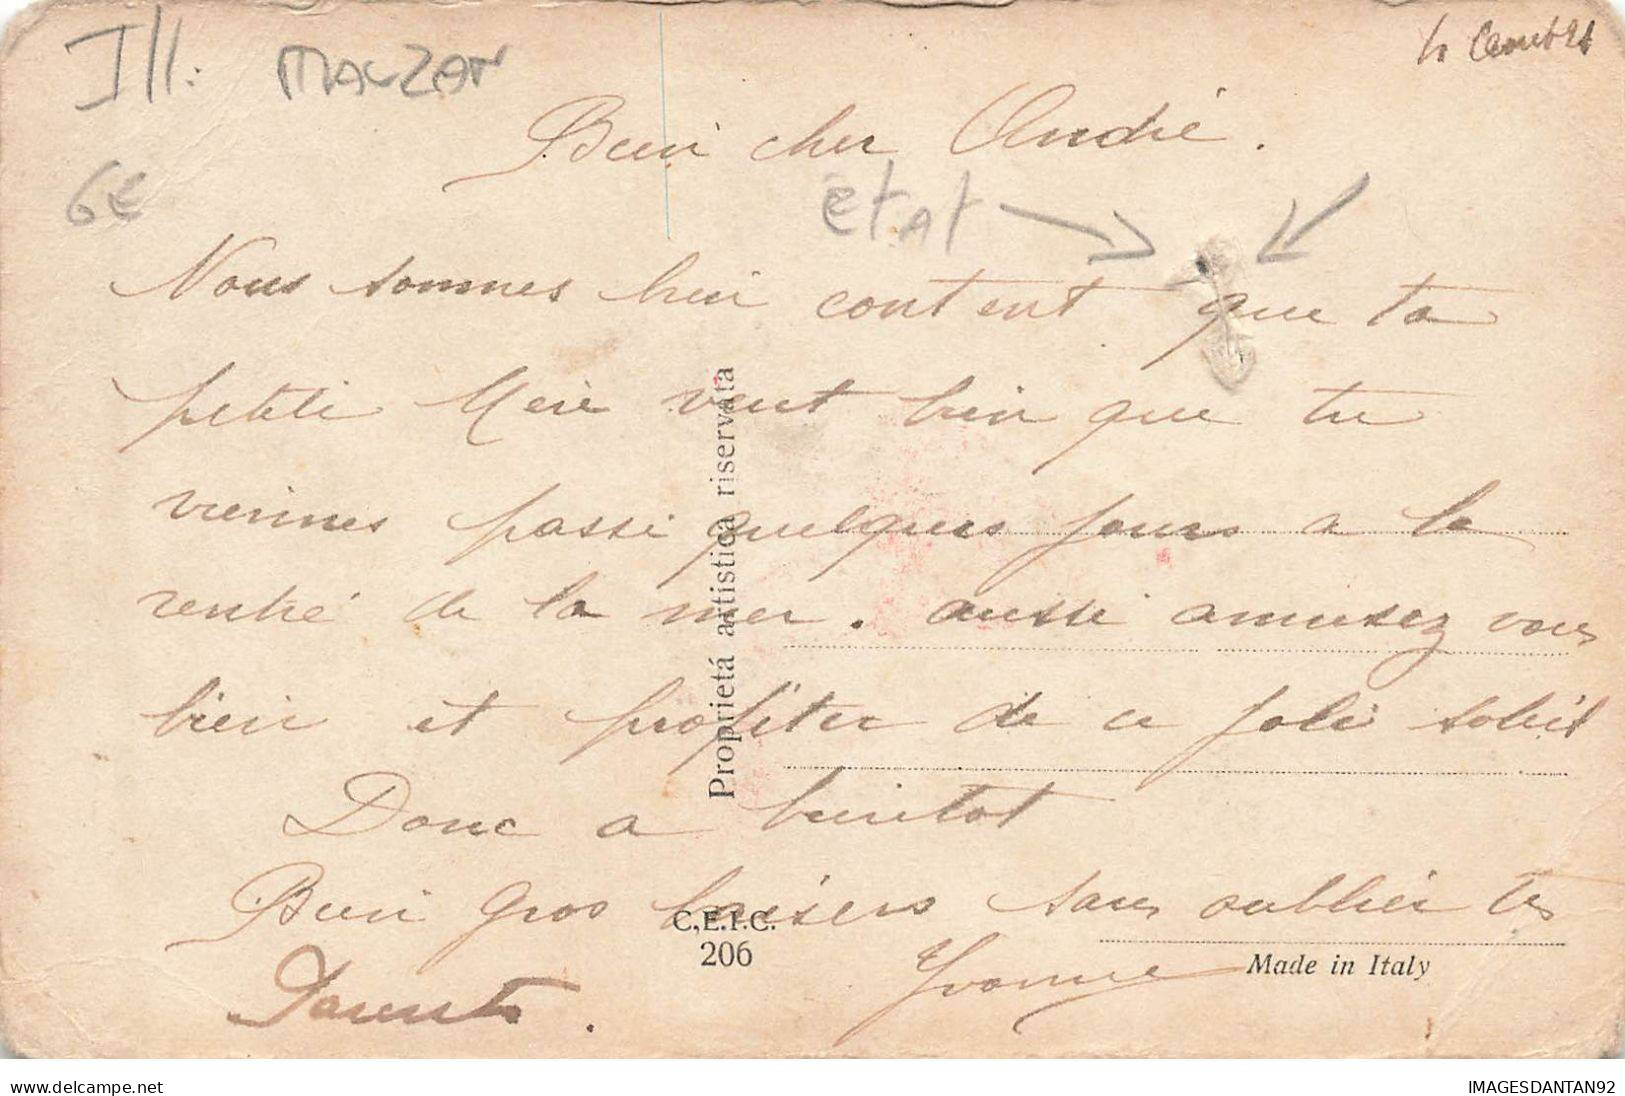 Ill: MAUZAN
6€
Bien cher André.
ETAT
Nous sommes bien content que ta
petite Mère veut bien que tu
viennes passé quelques jours a la
rentré de la mer. aussi amusez vous
bien et profiter de ce joli soleil
Donc a bientot
Bien gros baisers sans oublier tes
Parents.
Yvonne
Proprietá artistica riservata
C.E.I.C.
206
Made in Italy
delcampe.net
IMAGESDANTAN92